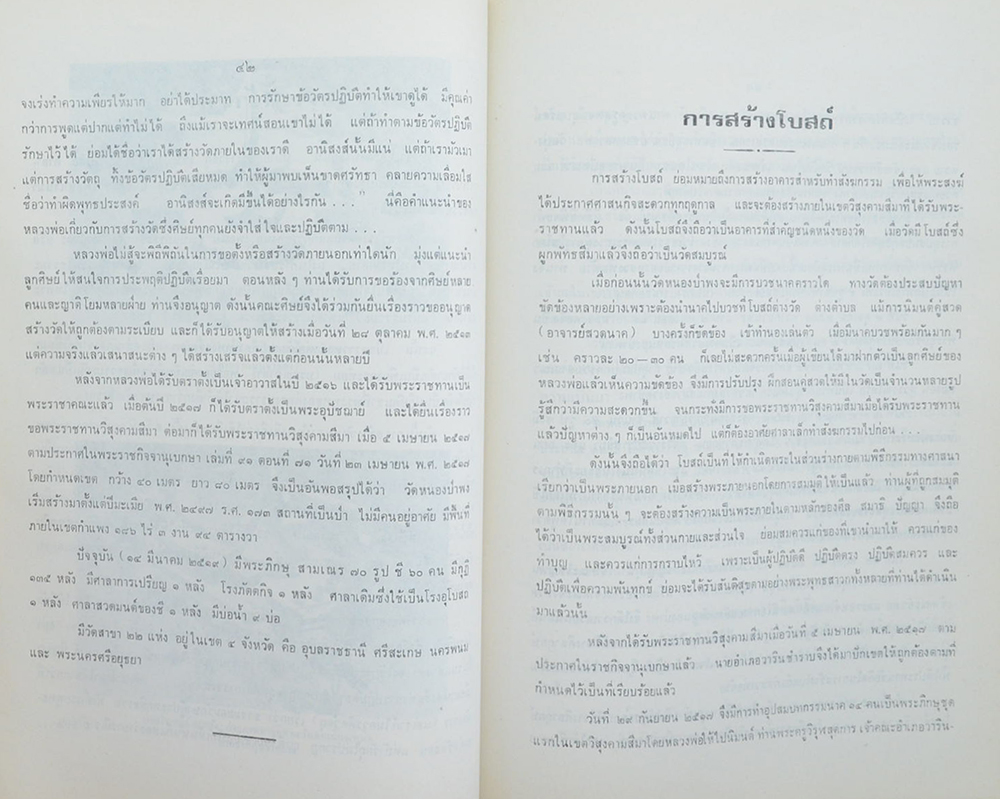 ๔๒
จงเร่งทำความเพียรให้มาก อย่าได้ประมาท การรักษาข้อวัตรปฏิบัติทำให้เขาดูได้ มีคุณค่า
กว่าการพูดแต่ปากแต่ทำไม่ได้ ถึงแม้เราจะเทศน์สอนเขาไม่ได้ แต่ถ้าทำตามข้อวัตรปฏิบัติ
รักษาไว้ได้ ย่อมได้ชื่อว่าเราได้สร้างวัดภายในของเราดี อานิสงส์นั้นมีแน่ แต่ถ้าเรามัวเมา
แต่การสร้างวัตถุ ทิ้งข้อวัตรปฏิบัติเสียหมด ทำให้ผู้มาพบเห็นขาดศรัทธา คลายความเลื่อมใส
ชื่อว่าทำผิดพุทธประสงค์ อานิสงส์จะเกิดมีขึ้นได้อย่างไรกัน . . . นี่คือคำแนะนำของ
หลวงพ่อเกี่ยวกับการสร้างวัดซึ่งศิษย์ทุกคนยังจำใส่ใจและปฏิบัติตาม . . .
หลวงพ่อไม่สู้จะพิถีพิถันในการขอตั้งหรือสร้างวัดภายนอกเท่าใดนัก มุ่งแต่แนะนำ
ลูกศิษย์ให้สนใจการประพฤติปฏิบัติเรื่อยมา ตอนหลัง ๆ ท่านได้รับการขอร้องจากศิษย์หลาย
คนและญาติโยมหลายฝ่าย ท่านจึงอนุญาต ดังนั้นคณะศิษย์จึงได้ร่วมกันยื่นเรื่องราวขออนุญาต
สร้างวัดให้ถูกต้องตามระเบียบ และก็ได้รับอนุญาตให้สร้างเมื่อวันที่ ๒๘ ตุลาคม พ.ศ. ๒๕๑๓
แต่ความจริงแล้วเสนาสนะต่าง ๆ ได้สร้างเสร็จแล้วตั้งแต่ก่อนนั้นหลายปี
หลังจากหลวงพ่อได้รับตราตั้งเป็นเจ้าอาวาสในปี ๒๕๑๖ และได้รับพระราชทานเป็น
พระราชาคณะแล้ว เมื่อต้นปี ๒๕๑๗ ก็ได้รับตราตั้งเป็นพระอุปัชฌาย์ และได้ยื่นเรื่องราว
ขอพระราชทานวิสุงคามสีมา ต่อมาก็ได้รับพระราชทานวิสุงคามสีมา เมื่อ ๕ เมษายน ๒๕๑๗
ตามประกาศในพระราชกิจจานุเบกษา เล่มที่ ๙๑ ตอนที่ ๗๑ วันที่ ๒๓ เมษายน พ.ศ. ๒๕๑๗
โดยกำหนดเขต กว้าง ๔๐ เมตร ยาว ๘๐ เมตร จึงเป็นอันพอสรุปได้ว่า วัดหนองป่าพง
เริ่มสร้างมาตั้งแต่ปีมะเมีย พ.ศ. ๒๔๙๗ ร.ศ. ๑๗๓ สถานที่เป็นป่า ไม่มีคนอยู่อาศัย มีพื้นที่
ภายในเขตกำแพง ๑๘๖ ไร่ ๓ งาน ๙๔ ตารางวา
ปัจจุบัน ( ๑๔ มีนาคม ๒๕๑๙ ) มีพระภิกษุ สามเณร ๗๐ รูป ชี ๖๐ คน มีกุฏิ
๑๓๕ หลัง มีศาลาการเปรียญ ๑ หลัง โรงภัตตกิจ ๑ หลัง ศาลาเดิมซึ่งใช้เป็นโรงอุโบสถ
๑ หลัง ศาลาสวดมนต์ของชี ๑ หลัง มีบ่อน้ำ ๙ บ่อ
มีวัดสาขา ๒๒ แห่ง อยู่ในเขต ๔ จังหวัด คือ อุบลราชธานี ศรีสะเกษ นครพนม
และ พระนครศรีอยุธยา
การสร้างโบสถ์
การสร้างโบสถ์ ย่อมหมายถึงการสร้างอาคารสำหรับทำสังฆกรรม เพื่อให้พระสงฆ์
ได้ประกาศศาสนกิจสะดวกทุกฤดูกาล และจะต้องสร้างภายในเขตวิสุงคามสีมาที่ได้รับพระ-
ราชทานแล้ว ดังนั้นโบสถ์จึงถือว่าเป็นอาคารที่สำคัญชนิดหนึ่งของวัด เมื่อวัดมีโบสถ์ซึ่ง
ผูกพัทธสีมาแล้วจึงถือว่าเป็นวัดสมบูรณ์
เมื่อก่อนนั้นวัดหนองป่าพงจะมีการบวชนาคคราวใด ทางวัดต้องประสบปัญหา
ขัดข้องหลายอย่างเพราะต้องนำนาคไปบวชที่โบสถ์ต่างวัด ต่างตำบล แม้การนิมนต์คู่สวด
( อาจารย์สวดนาค ) บางครั้งก็ขัดข้อง เข้าทำนองเล่นตัว เมื่อมีนาคบวชพร้อมกันมาก ๆ
เช่น คราวละ ๒๐ — ๓๐ คน ก็เลยไม่สะดวกครั้นเมื่อผู้เขียนได้มาฝากตัวเป็นลูกศิษย์ของ
หลวงพ่อแล้วเห็นความขัดข้อง จึงมีการปรับปรุง ฝึกสอนคู่สวดให้มีในวัดเป็นจำนวนหลายรูป
รู้สึกว่ามีความสะดวกขึ้น จนกระทั่งมีการขอพระราชทานวิสุงคามสีมาเมื่อได้รับพระราชทาน
แล้วปัญหาต่าง ๆ ก็เป็นอันหมดไป แต่ก็ต้องอาศัยศาลาเล็กทำสังฆกรรมไปก่อน . . .
ดังนั้นจึงถือได้ว่า โบสถ์เป็นที่ให้กำเนิดพระในส่วนร่างกายตามพิธีกรรมทางศาสนา
เรียกว่าเป็นพระภายนอก เมื่อสร้างพระภายนอกโดยการสมมุติให้เป็นแล้ว ท่านผู้ที่ถูกสมมุติ
ตามพิธีกรรมนั้น ๆ จะต้องสร้างความเป็นพระภายในตามหลักของศีล สมาธิ ปัญญา จึงถือ
ได้ว่าเป็นพระสมบูรณ์ทั้งส่วนกายและส่วนใจ ย่อมสมควรแก่ของที่เขานำมาให้ ควรแก่ของ
ทำบุญ และควรแก่การกราบไหว้ เพราะเป็นผู้ปฏิบัติดี ปฏิบัติตรง ปฏิบัติสมควร และ
ปฏิบัติเพื่อความพ้นทุกข์ ย่อมจะได้รับสันติสุขตามอย่างพระพุทธสาวกทั้งหลายที่ท่านได้ดำเนิน
มาแล้วนั้น
หลังจากได้รับพระราชทานวิสุงคามสีมาเมื่อวันที่ ๕ เมษายน พ.ศ. ๒๕๑๗ ตาม
ประกาศในราชกิจจานุเบกษาแล้ว นายอำเภอวารินชำราบจึงได้มาปักเขตให้ถูกต้องตามที่
กำหนดไว้เป็นที่เรียบร้อยแล้ว
วันที่ ๒๙ กันยายน ๒๕๑๗ จึงมีการทำอุปสมบทกรรมนาค ๑๔ คนเป็นพระภิกษุชุด
แรกในเขตวิสุงคามสีมาโดยหลวงพ่อให้ไปนิมนต์ ท่านพระครูวิรุฬสุตการ เจ้าคณะอำเภอวาริน-